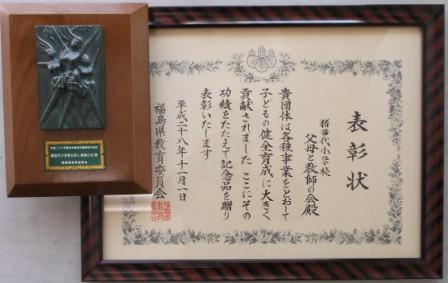 表彰状
猪苗代小学校
父母と教師の会殿
貴団体は各種事業をとおして
子どもの健全育成に大きく
貢献されました ここにその
功績をたたえて記念品を贈り
表彰いたします
平成二十八年十一月一日
福島県教育委員会